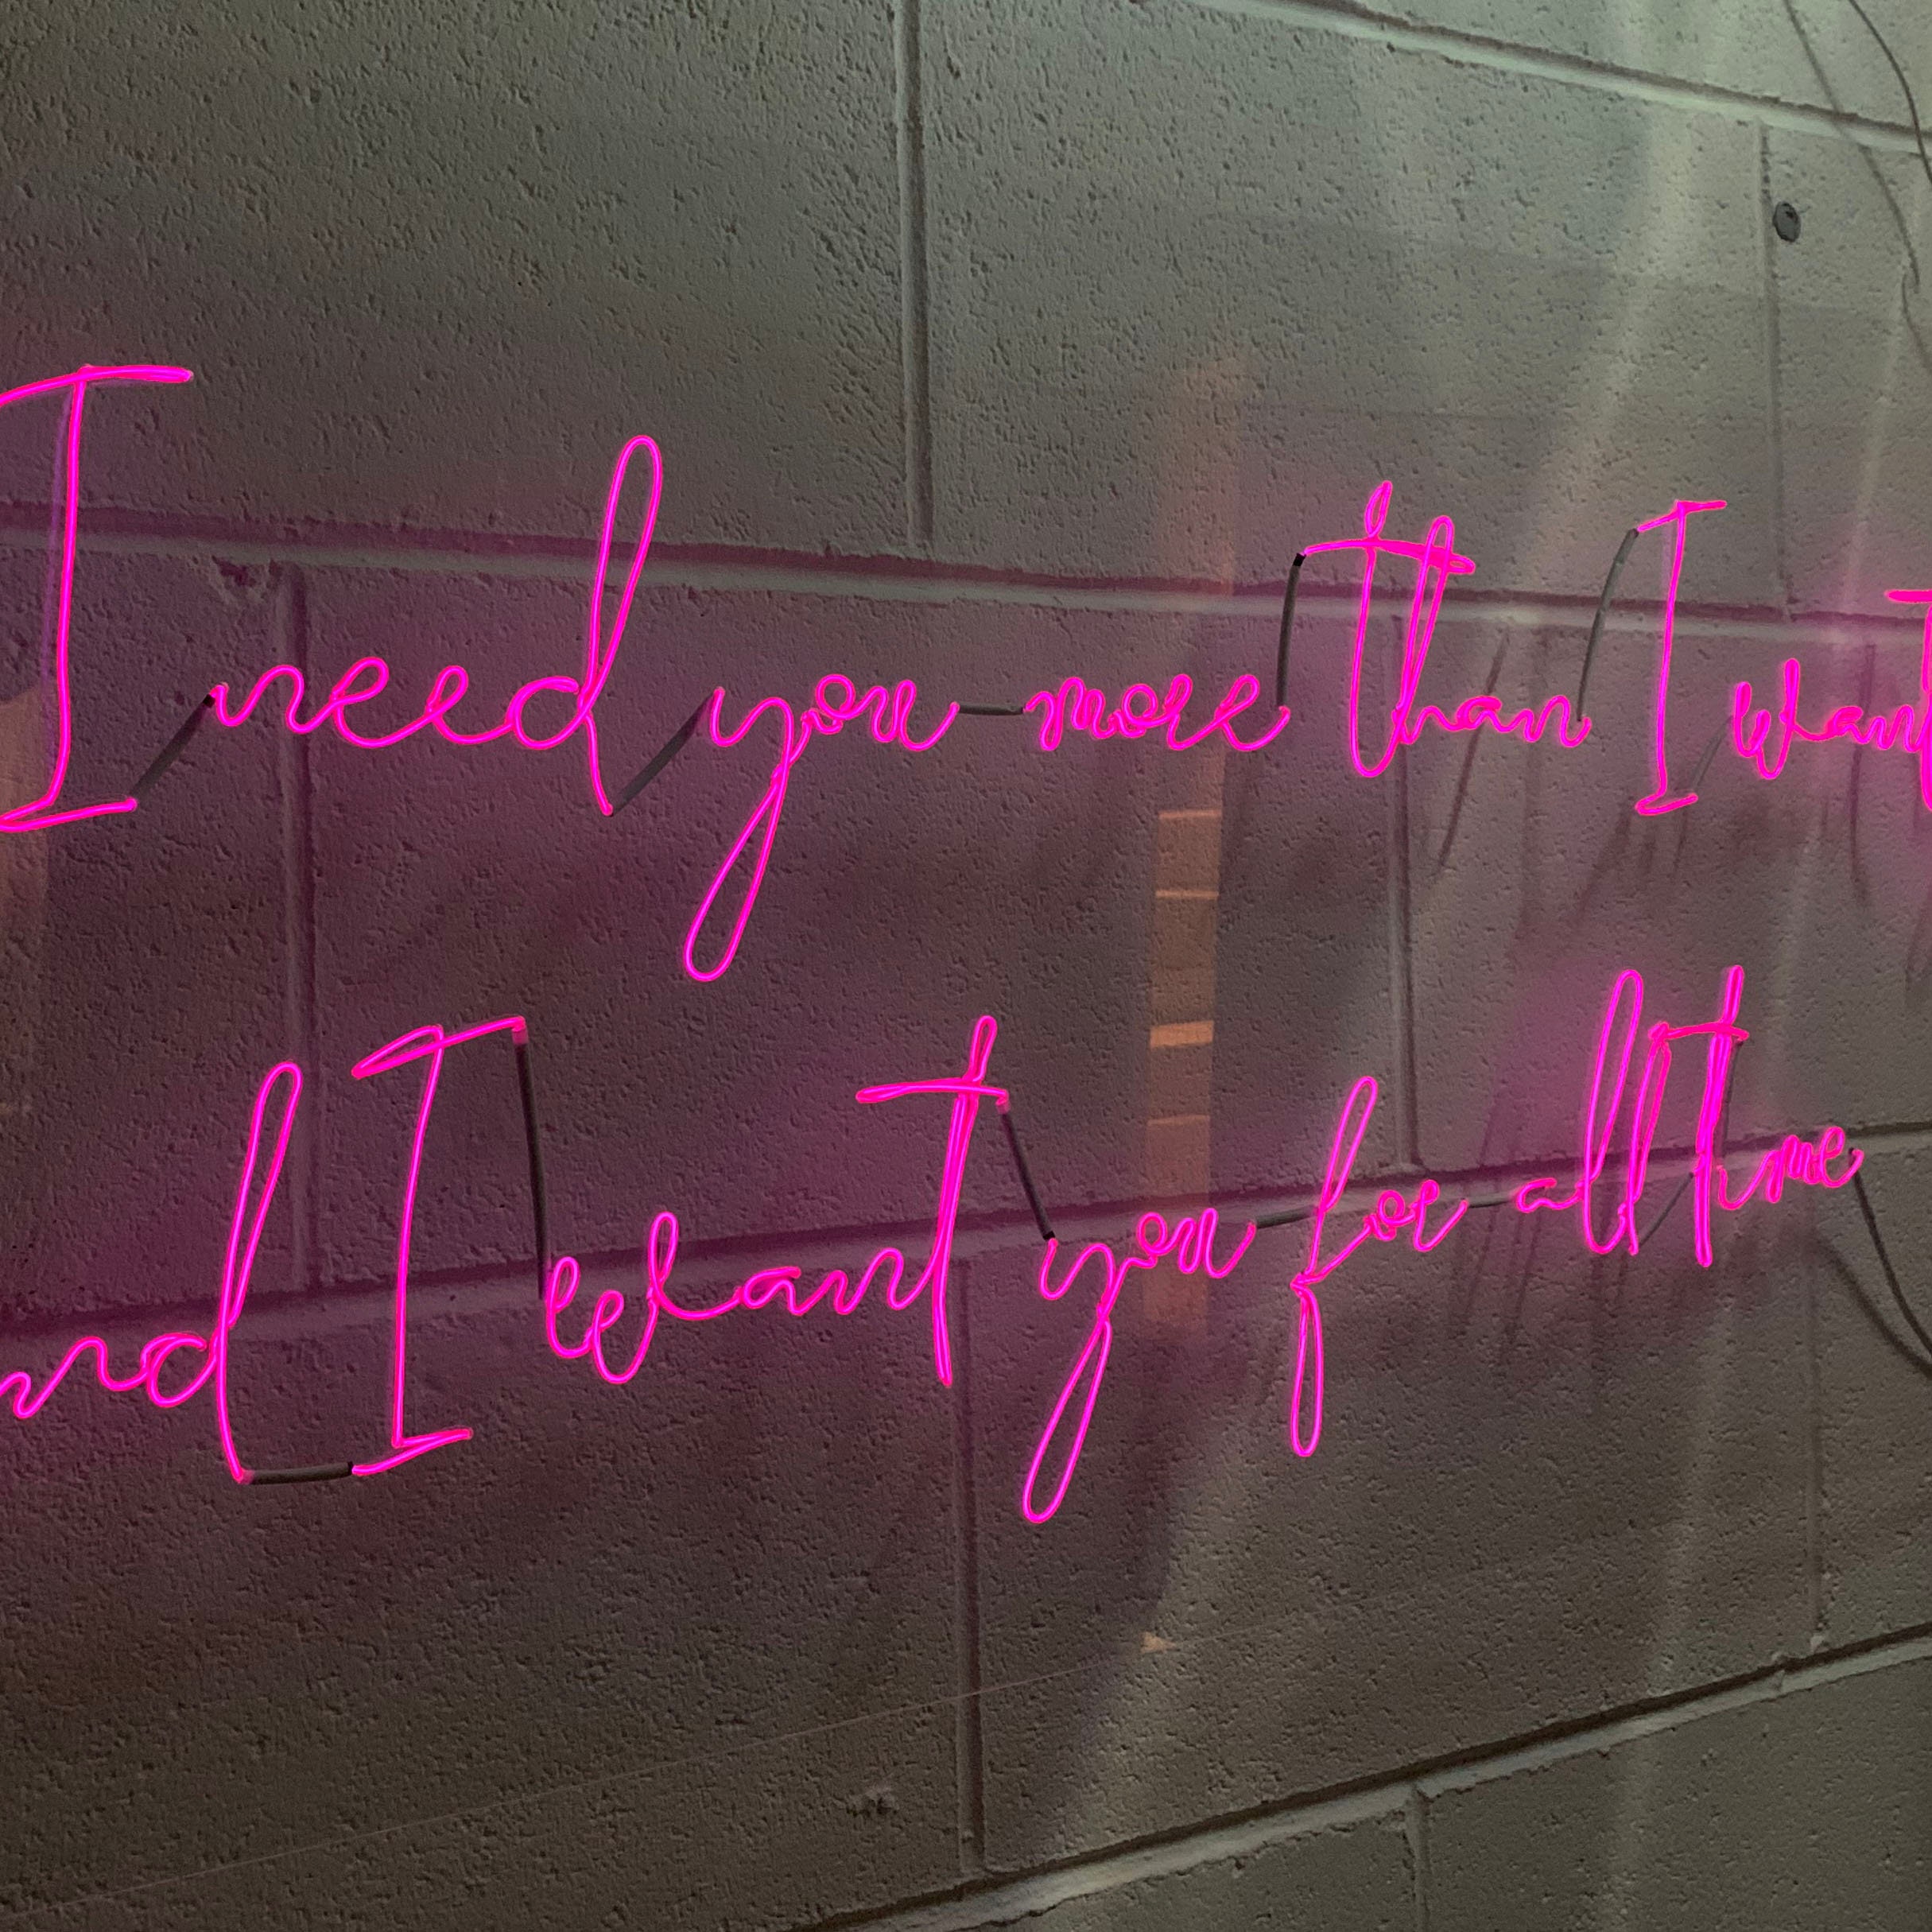 I need you more than I want
nd I want you for all time